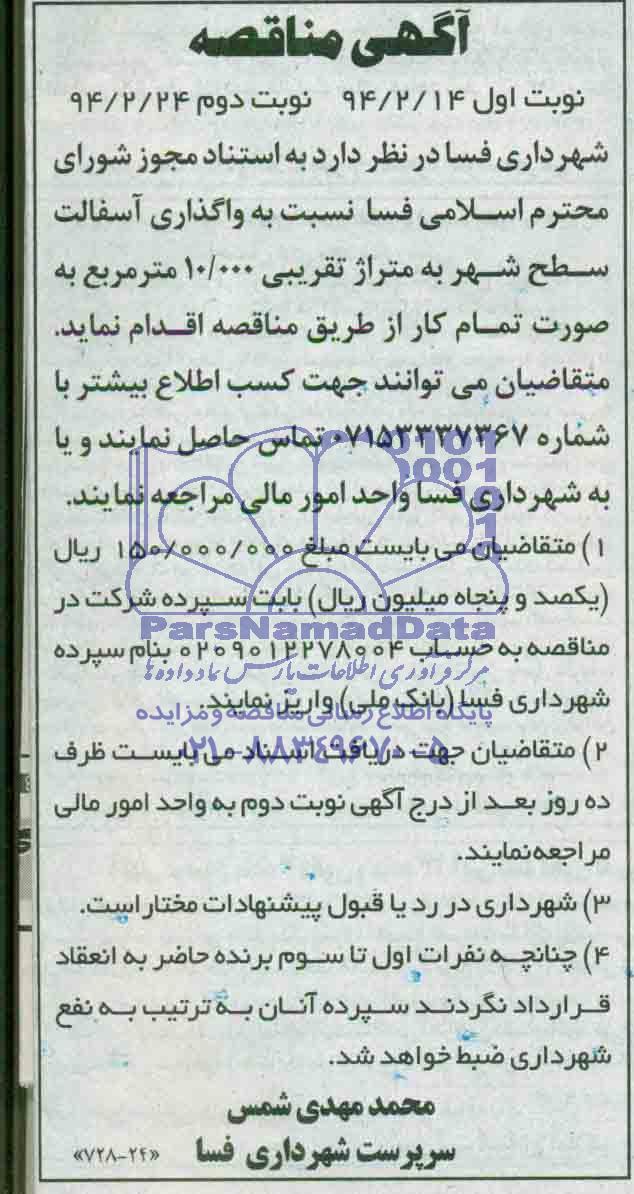 آگهی مناقصه
نوبت اول ۹۴/۲/۱۴ نوبت دوم ۹۴/۲/۲۴
شهرداری فسا در نظر دارد به استناد مجوز شورای
محترم اسلامی فسا نسبت به واگذاری آسفالت
سطح شهر به متراژ تقریبی ۱۰/۰۰۰ مترمربع به
صورت تمام کار از طریق مناقصه اقدام نماید.
متقاضیان می توانند جهت کسب اطلاع بیشتر با
شماره ۰۷۱۵۳۳۳۷۳۶۷ تماس حاصل نمایند و یا
به شهرداری فسا واحد امور مالی مراجعه نمایند.
۱) متقاضیان می بایست مبلغ ۱۵۰/۰۰۰/۰۰۰ ریال
(یکصد و پنجاه میلیون ریال) بابت سپرده شرکت در
ParsNamadData
مناقصه به حساب ۰۲۰۹۰۱۲۲۷۸۰۰۴ بنام سپرده
مرکز فرآوری اطلاعات پارس نماد داده ها
شهرداری فسا (بانک ملی) واریز نمایند.
پایگاه اطلاع رسانی مناقصه و مزایده
۲) متقاضیان جهت دریافت اسناد می بایست ظرف
۰۲۱-۸۸۳۴۹۶۷۰-۵
ده روز بعد از درج آگهی نوبت دوم به واحد امور مالی
مراجعه نمایند.
۳) شهرداری در رد یا قبول پیشنهادات مختار است.
۴) چنانچه نفرات اول تا سوم برنده حاضر به انعقاد
قرارداد نگردند سپرده آنان به ترتیب به نفع
شهرداری ضبط خواهد شد.
محمد مهدی شمس
سرپرست شهرداری فسا «۷۲۸-۲۴»